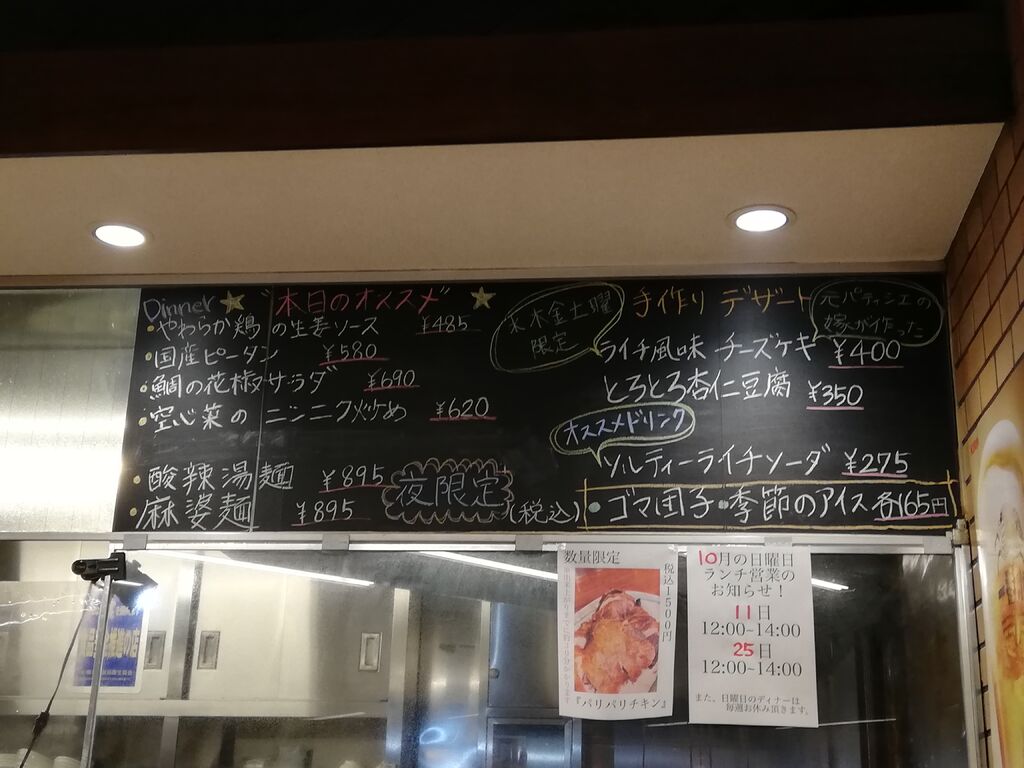 Dinner ★ "本日のオススメ" ★
・やわらか鶏の生姜ソース ¥485
・国産ピータン ¥580
・鯛の花椒サラダ ¥690
・空心菜のニンニク炒め ¥620
・酸辣湯麺 ¥895
・麻婆麺 ¥895
夜限定
(税込)
木金土曜
限定
手作りデザート
元パティシエの
嫁が作った
ライチ風味チーズケーキ ¥400
とろとろ杏仁豆腐 ¥350
オススメドリンク
ソルティーライチソーダ ¥275
・ゴマ団子・季節のアイス各165円
数量限定
税込1500円
『パリパリチキン』
10月の日曜日
ランチ営業の
お知らせ！
11日
12:00~14:00
25日
12:00~14:00
また、日曜日のディナーは
毎週お休み頂きます。